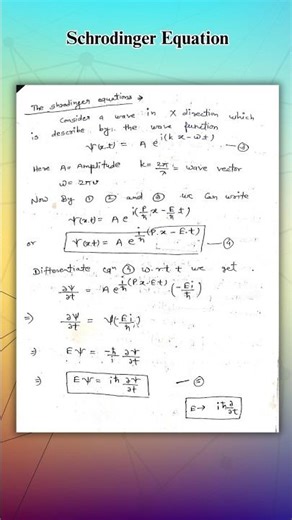 Schrodinger Equation
The shrodinger equations →
Consider a wave in X direction which
is describe by the wave function
Ψ(x,t) = A e^{i(kx - ωt)} — ③
Here A = Amplitude k = 2π/λ = wave vector
ω = 2πν
Now By ① ② and ③ we can write
Ψ(x,t) = A e^{i(P/ħ x - E/ħ t)}
or Ψ(x,t) = A e^{i/ħ (P.x - E.t)} — ④
Differentiate eqn ④ w.r.t t we get.
∂Ψ/∂t = A e^{i/ħ (P.x - E.t)} (-Ei/ħ)
⇒ ∂Ψ/∂t = Ψ(-Ei/ħ)
⇒ EΨ = -ħ/i ∂Ψ/∂t
⇒ EΨ = iħ ∂Ψ/∂t — ⑤
E → iħ ∂/∂t